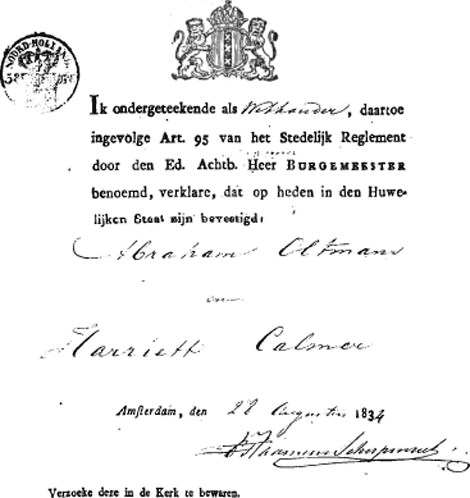 NOORD-HOLLAND
Ik ondergeteekende als Wethouder, daartoe
ingevolge Art. 95 van het Stedelijk Reglement
door den Ed. Achtb. Heer BURGEMEESTER
benoemd, verklare, dat op heden in den Huwe-
lijken Staat zijn bevestigd:
Abraham Oltmans
en
Harriett Calmer
Amsterdam, den 28 Augustus 1834
Verzoeke deze in de Kerk te bewaren.